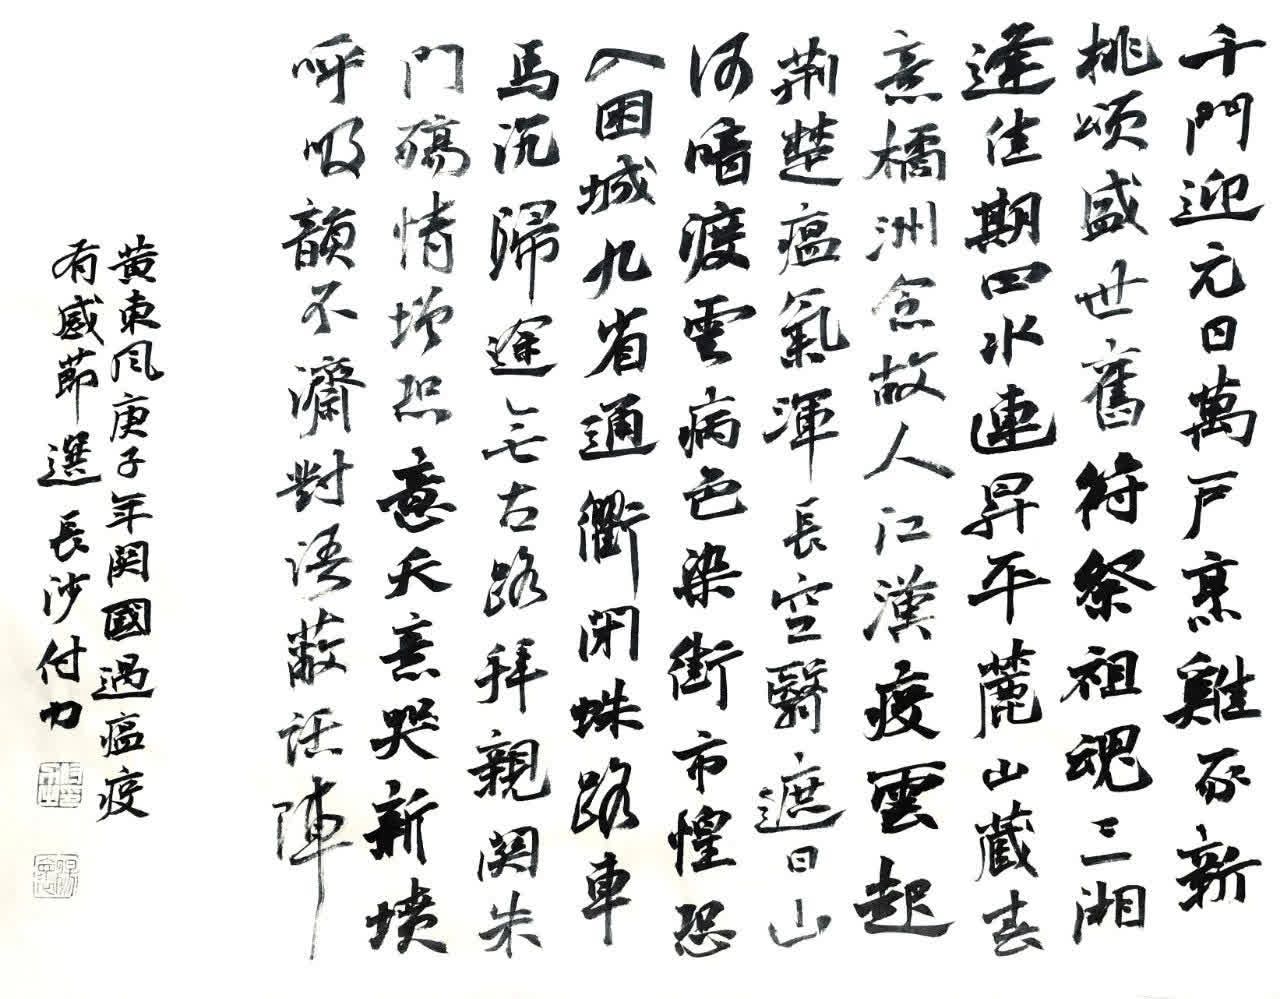 千門迎元日萬戸烹雞豕新
桃頌盛世舊符祭祖魂三湘
逢佳期四水連昇平麓山藏春
意橘洲念故人江漢疫雲起
荊楚瘟氣渾長空翳遮日山
河暗渡雲病色染街市惶恐
入困城九省通衢閉蛛路車
馬沉歸途無古路拜親関朱
門殤情增恐意天意哭新墳
呼吸韻不濟對語蔽話陣
黄東風庚子年関國過瘟疫
有感節選 長沙付力